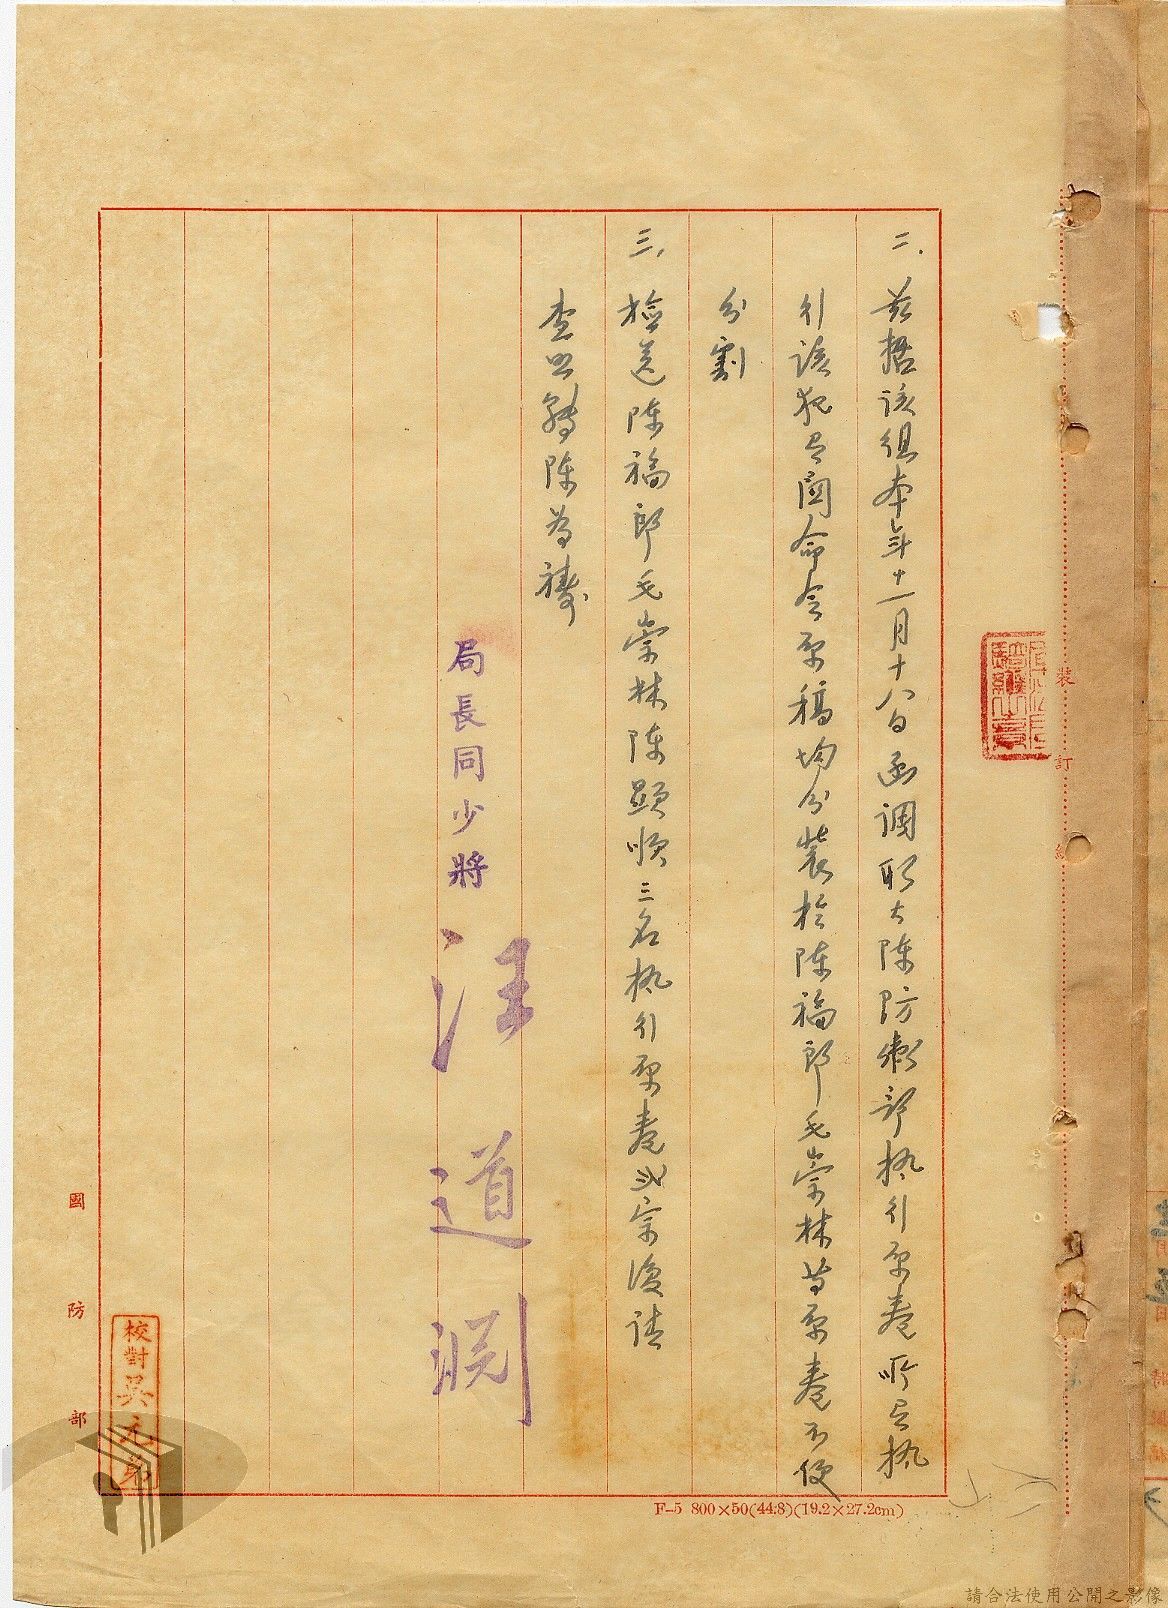 二、茲據該組本年十一月十八日函調取大陳防衛部執行原卷所有執
行該犯有關命令原稿均分裝於陳福郎毛崇林等原卷不便
分割
三、檢送陳福郎毛崇林陳顕順三名执行原卷弍宗復請
查照轉陳為禱
局長同少將汪道淵
裝
訂
線
國防部
校對吳元弟
F-5 800×50(44.8)(19.2×27.2cm)
請合法使用公開之影像